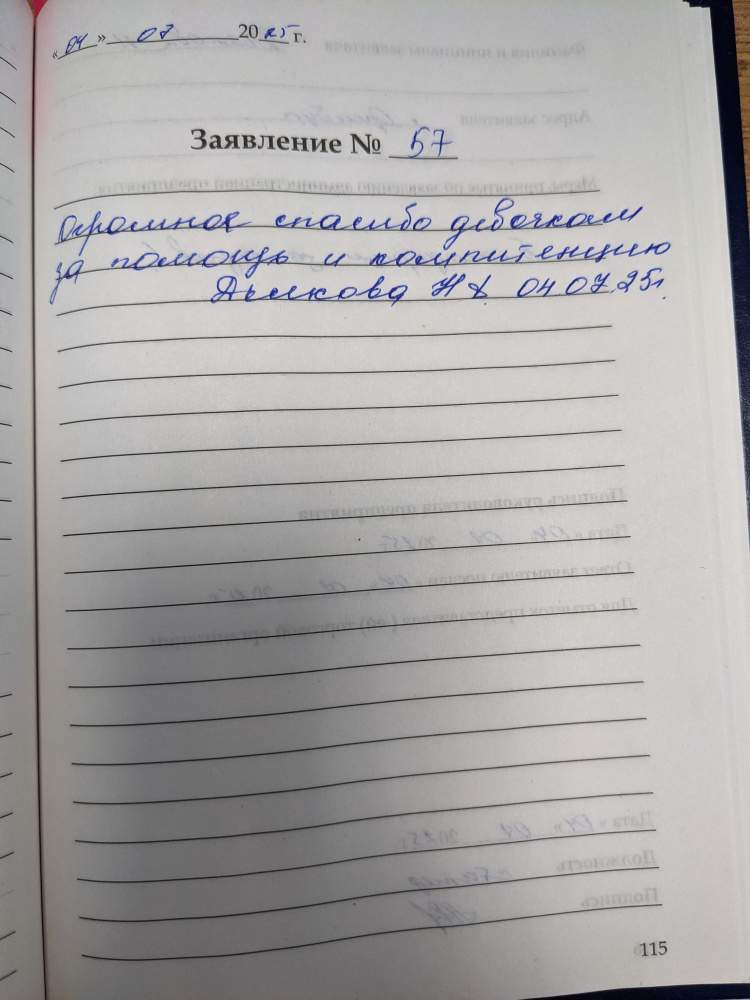 «04» 07 2025 г.
Заявление № 57
Огромное спасибо девочкам
за помощь и компитенцию
04 07.25г.
115